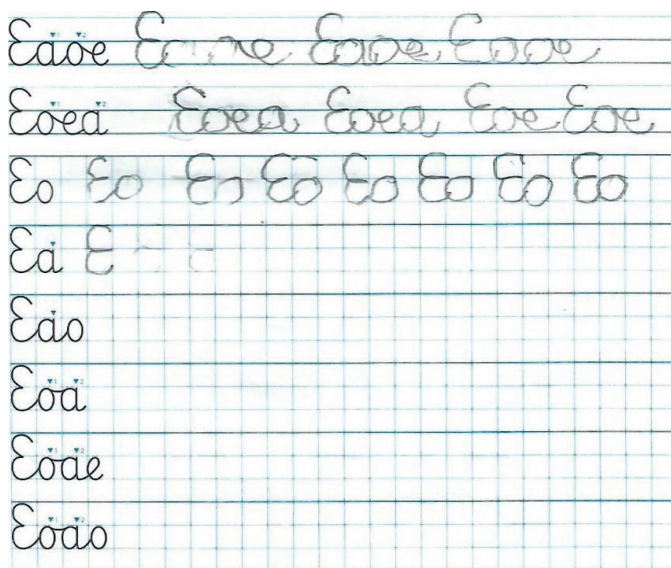 Eaoe Eaoe Eaoe
Eoea Eoea Eoea Eoe Eoe
Eo Eo Eo Eo Eo Eo Eo Eo
Ea E
Eao
Eoa
Eoae
Eoao